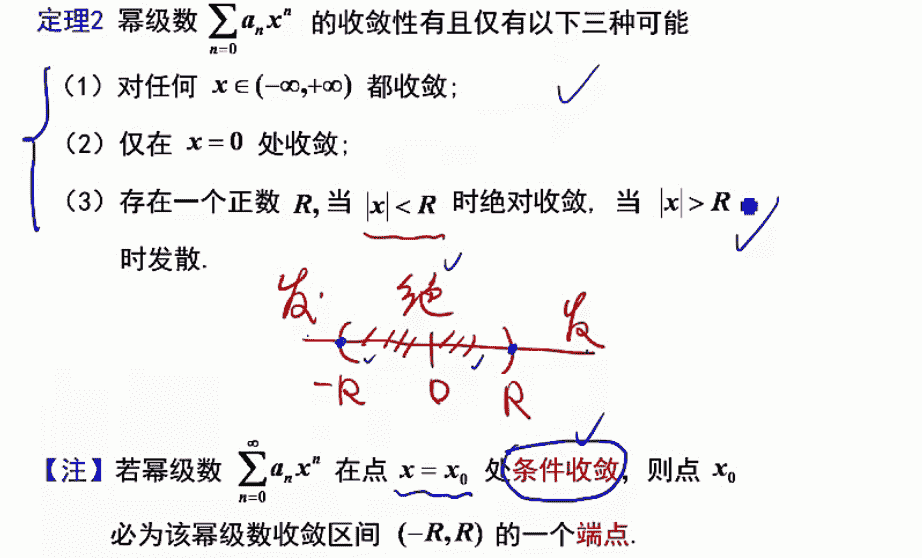 定理2 幂级数 ∑_{n=0} a_n x^n 的收敛性有且仅有以下三种可能
（1）对任何 x∈(-∞,+∞) 都收敛；
（2）仅在 x=0 处收敛；
（3）存在一个正数 R, 当 |x|<R 时绝对收敛，当 |x|>R
时发散.
发. 绝 发
-R 0 R
【注】若幂级数 ∑_{n=0}^{∞} a_n x^n 在点 x=x_0 处条件收敛，则点 x_0
必为该幂级数收敛区间 (-R,R) 的一个端点.